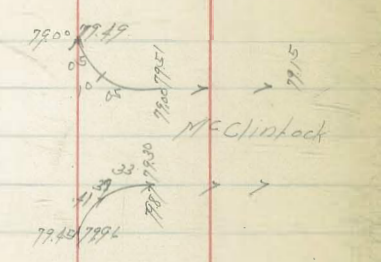 79.00 79.49
05
10
05
79.00 79.51
79.15
McClintock
.33
.39
.41
79.30
79.45 79.96